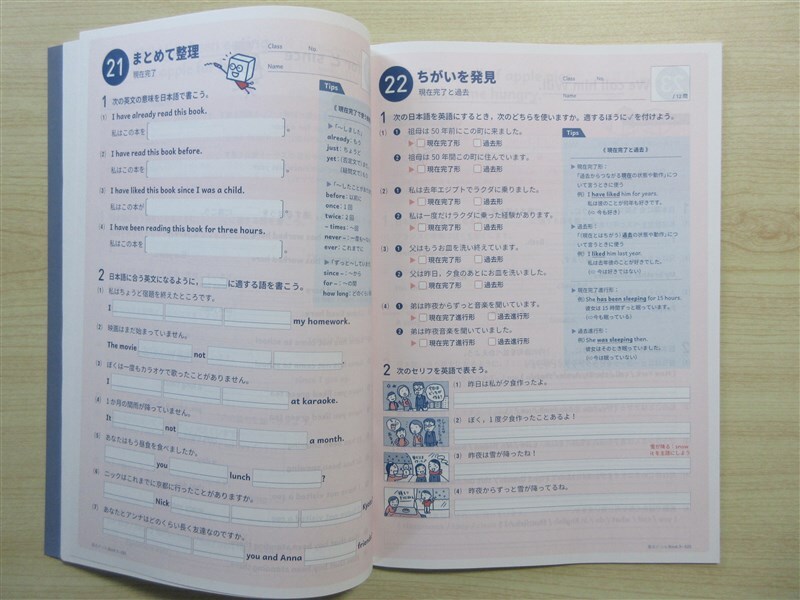 21 まとめて整理
現在完了
Class No.
Name
1 次の英文の意味を日本語で書こう。
(1) I have already read this book.
私はこの本を 。
(2) I have read this book before.
私はこの本を 。
(3) I have liked this book since I was a child.
私はこの本が 。
(4) I have been reading this book for three hours.
私はこの本を 。
Tips
《現在完了で
▶「〜しました」
already:もう
just:ちょうど
yet:
▶「〜したことが
before:以前に
once:1回
twice:2回
– times:〜回
never –:一度も
ever:これまでに
▶「ずっと〜してい
since –:〜から
for –:〜の間
how long:
2 日本語に合う英文になるように, に適する語を書こう。
(1) 私はちょうど宿題を終えたところです。
I my homework.
(2) 映画はまだ始まっていません。
The movie not .
(3) ぼくは一度もカラオケで歌ったことがありません。
I at karaoke.
(4) 1か月の間雨が降っていません。
It not a month.
(5) あなたはもう昼食を食べましたか。
you lunch ?
(6) ニックはこれまでに京都に行ったことがありますか。
Nick
(7) あなたとアンナはどのくらい長く友達なのですか。
you and Anna
22 ちがいを発見
現在完了と過去
Class No.
Name
/12問
1 次の日本語を英語にするとき,次のどちらを使いますか。適するほうに✓を付けよう。
(1) ❶ 祖母は50年前にこの町に来ました。
▶ □現在完了形 □過去形
❷ 祖母は50年間この町に住んでいます。
▶ □現在完了形 □過去形
(2) ❶ 私は去年エジプトでラクダに乗りました。
▶ □現在完了形 □過去形
❷ 私は一度だけラクダに乗った経験があります。
▶ □現在完了形 □過去形
(3) ❶ 父はもうお皿を洗い終えています。
▶ □現在完了形 □過去形
❷ 父は昨日,夕食のあとにお皿を洗いました。
▶ □現在完了形 □過去形
(4) ❶ 弟は昨夜からずっと音楽を聞いています。
▶ □現在完了進行形 □過去進行形
❷ 弟は昨夜音楽を聞いていました。
▶ □現在完了進行形 □過去進行形
Tips
《現在完了と過去》
▶ 現在完了形:
「過去からつながる現在の状態や動作」について言うときに使う
例) I have liked him for years.
私は彼のことが何年も好きです。
(⇨今も好き)
▶ 過去形:
「(現在とはちがう)過去の状態や動作」について言うときに使う
例) I liked him last year.
私は去年彼のことが好きでした。
(⇨今は好きではない)
▶ 現在完了進行形:
例) She has been sleeping for 15 hours.
彼女は15時間ずっと眠っています。
(⇨今も眠っている)
▶ 過去進行形:
例) She was sleeping then.
彼女はそのとき眠っていました。
(⇨今は眠っていない)
2 次のセリフを英語で表そう。
(1) 昨日は私が夕食作ったよ。
(2) ぼく,1度夕食作ったことあるよ!
(3) 昨夜は雪が降ったね!
雪が降る:snow
itを主語にしよう
(4) 昨夜からずっと雪が降ってるね。